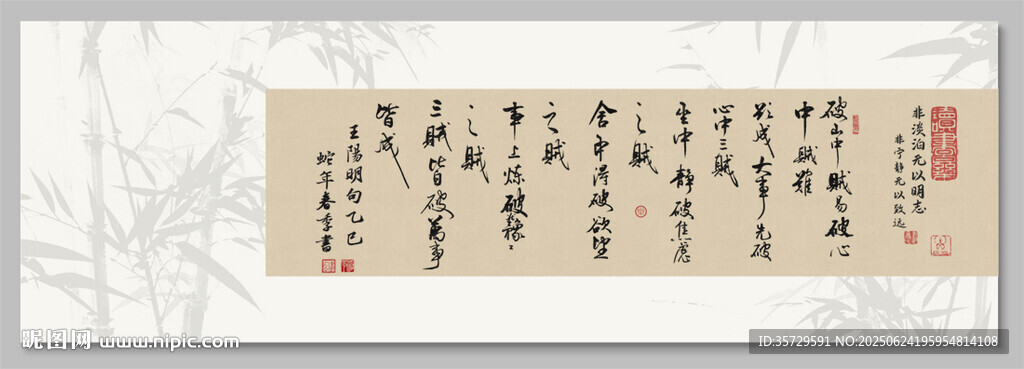 非淡泊无以明志
非宁静无以致远
破山中賊易破心
中賊難
欲成大事先破
心中三賊
坐中靜破焦慮
之賊
舍中得破欲望
之賊
事上煉破猶豫
之賊
三賊皆破萬事
皆成
王陽明句乙巳
蛇年春季書
昵图网 www.nipic.com
ID:35729591 NO:20250624195954814108